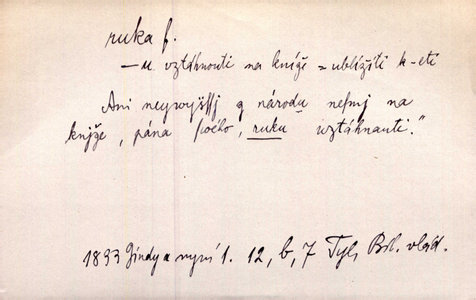 ruka f.
— u vztáhnouti na kníže = ublížiti k-eti
Ani neywyššj z národu nesmj na
knjže, pána swého, ruku wztáhnauti."
1833 Jindy a nyní 1. 12, b, 7 Tyl, Bol. vlád.